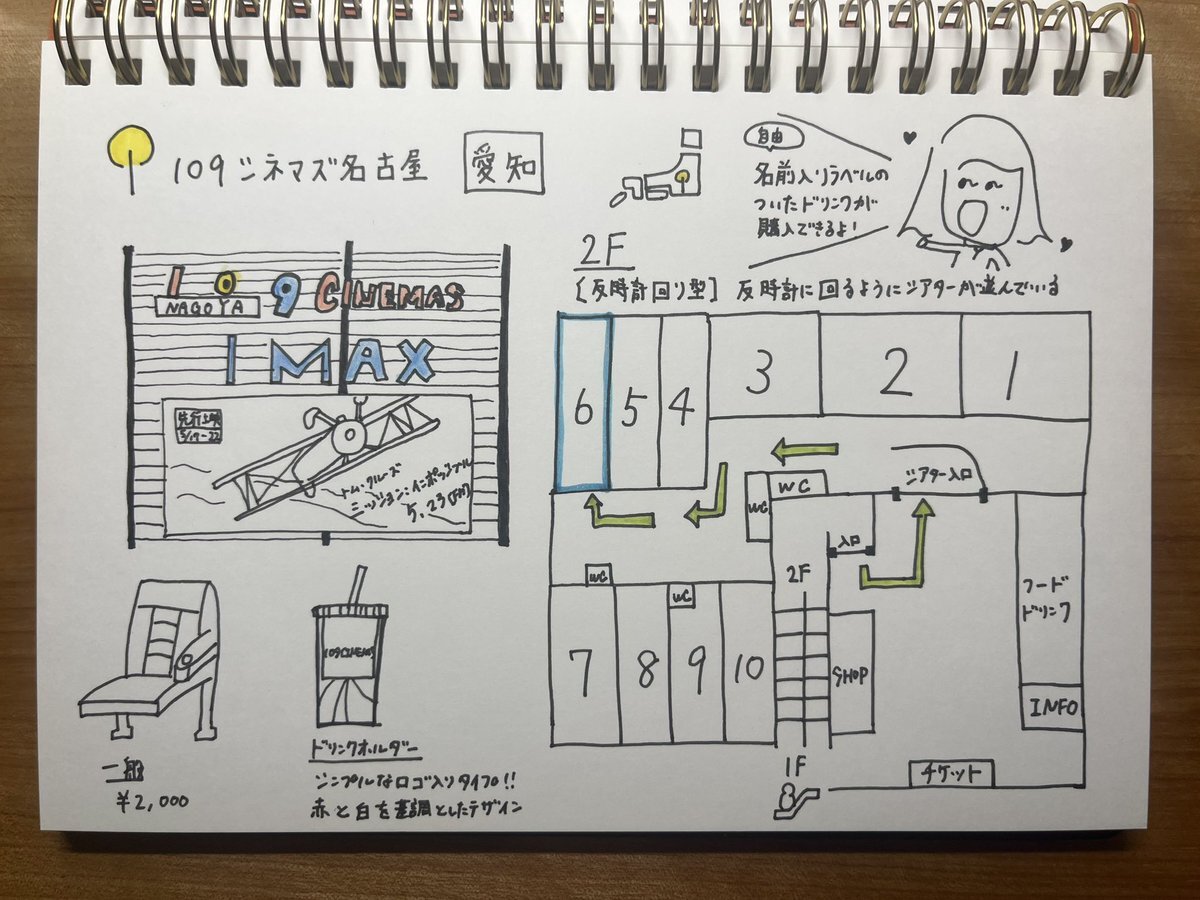 109シネマズ名古屋
愛知
自由
名前入りラベルの
ついたドリンクが
購入できるよ!
109 CINEMAS
NAGOYA
IMAX
先行上映
5/17-22
トム・クルーズ
ミッション:インポッシブル
5.23(FRI)
2F
[反時計回り型] 反時計に回るようにシアターが並んでいる
6
5
4
3
2
1
シアター入口
WC
WC
入口
2F
WC
WC
フード
ドリンク
7
8
9
10
SHOP
INFO
1F
チケット
一般
¥2,000
109CINEMAS
ドリンクホルダー
シンプルなロゴ入りタイプ!!
赤と白を基調としたデザイン